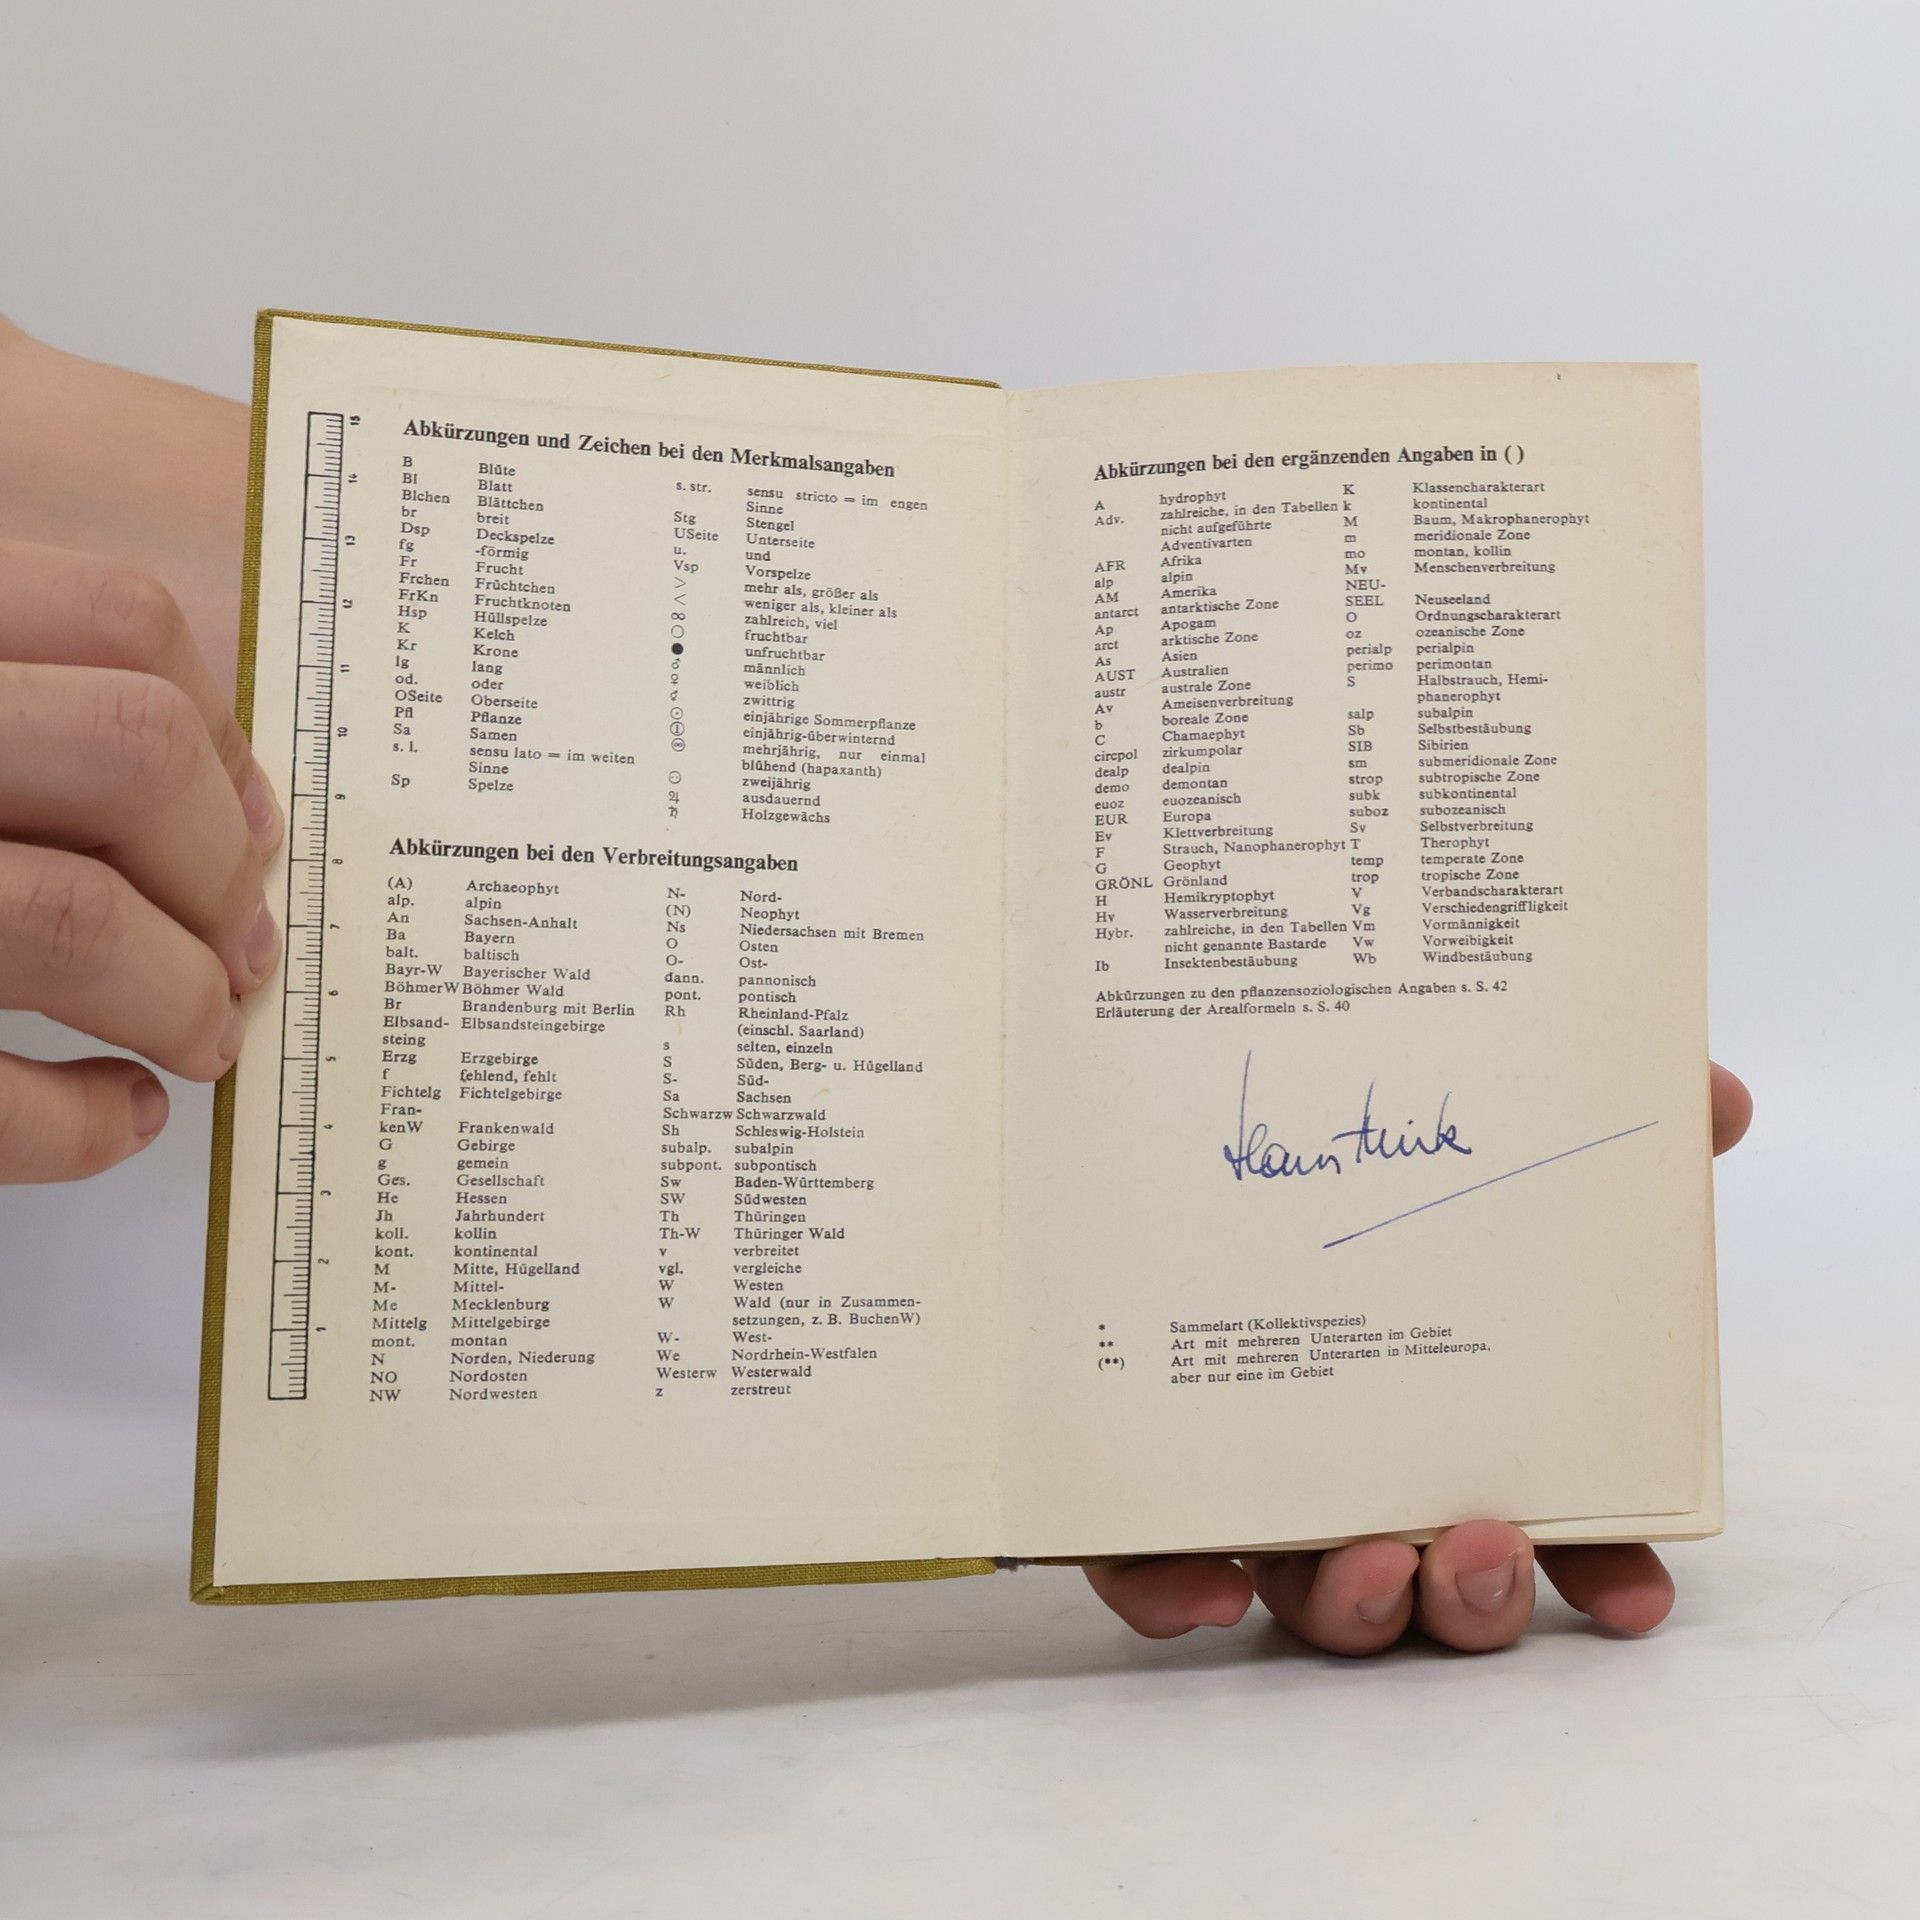 Abkürzungen und Zeichen bei den Merkmalsangaben
B Blüte
Bl Blatt
Blchen Blättchen
br breit
Dsp Deckspelze
fg -förmig
Fr Frucht
Frchen Früchtchen
FrKn Fruchtknoten
Hsp Hüllspelze
K Kelch
Kr Krone
lg lang
od. oder
OSeite Oberseite
Pfl Pflanze
Sa Samen
s. l. sensu lato = im weiten
Sinne
Sp Spelze
s. str. sensu stricto = im engen
Sinne
Stg Stengel
USeite Unterseite
u. und
Vsp Vorspelze
> mehr als, größer als
< weniger als, kleiner als
∞ zahlreich, viel
○ fruchtbar
● unfruchtbar
♂ männlich
♀ weiblich
⚥ zwittrig
⊙ einjährige Sommerpflanze
① einjährig-überwinternd
mehrjährig, nur einmal
blühend (hapaxanth)
zweijährig
♃ ausdauernd
♄ Holzgewächs
Abkürzungen bei den Verbreitungsangaben
(A) Archaeophyt
alp. alpin
An Sachsen-Anhalt
Ba Bayern
balt. baltisch
Bayr-W Bayerischer Wald
BöhmerW Böhmer Wald
Br Brandenburg mit Berlin
Elbsand- Elbsandsteingebirge
steing
Erzg Erzgebirge
f fehlend, fehlt
Fichtelg Fichtelgebirge
Fran-
kenW Frankenwald
G Gebirge
g gemein
Ges. Gesellschaft
He Hessen
Jh Jahrhundert
koll. kollin
kont. kontinental
M Mitte, Hügelland
M- Mittel-
Me Mecklenburg
Mittelg Mittelgebirge
mont. montan
N Norden, Niederung
NO Nordosten
NW Nordwesten
N- Nord-
(N) Neophyt
Ns Niedersachsen mit Bremen
O Osten
O- Ost-
dann. pannonisch
pont. pontisch
Rh Rheinland-Pfalz
(einschl. Saarland)
s selten, einzeln
S Süden, Berg- u. Hügelland
S- Süd-
Sa Sachsen
Schwarzw Schwarzwald
Sh Schleswig-Holstein
subalp. subalpin
subpont. subpontisch
Sw Baden-Württemberg
SW Südwesten
Th Thüringen
Th-W Thüringer Wald
v verbreitet
vgl. vergleiche
W Westen
W Wald (nur in Zusammen-
setzungen, z. B. BuchenW)
W- West-
We Nordrhein-Westfalen
Westerw Westerwald
z zerstreut
15
14
13
12
11
10
9
8
7
6
5
4
3
2
1
Abkürzungen bei den ergänzenden Angaben in ( )
A hydrophyt
Adv. zahlreiche, in den Tabellen
nicht aufgeführte
Adventivarten
AFR Afrika
alp alpin
AM Amerika
antarct antarktische Zone
Ap Apogam
arct arktische Zone
As Asien
AUST Australien
austr australe Zone
Av Ameisenverbreitung
b boreale Zone
C Chamaephyt
circpol zirkumpolar
dealp dealpin
demo demontan
euoz euozeanisch
EUR Europa
Ev Klettverbreitung
F Strauch, Nanophanerophyt
G Geophyt
GRÖNL Grönland
H Hemikryptophyt
Hv Wasserverbreitung
Hybr. zahlreiche, in den Tabellen
nicht genannte Bastarde
Ib Insektenbestäubung
K Klassencharakterart
k kontinental
M Baum, Makrophanerophyt
m meridionale Zone
mo montan, kollin
Mv Menschenverbreitung
NEU-
SEEL Neuseeland
O Ordnungscharakterart
oz ozeanische Zone
perialp perialpin
perimo perimontan
S Halbstrauch, Hemi-
phanerophyt
salp subalpin
Sb Selbstbestäubung
SIB Sibirien
sm submeridionale Zone
strop subtropische Zone
subk subkontinental
suboz subozeanisch
Sv Selbstverbreitung
T Therophyt
temp temperate Zone
trop tropische Zone
V Verbandscharakterart
Vg Verschiedengriffligkeit
Vm Vormännigkeit
Vw Vorweibigkeit
Wb Windbestäubung
Abkürzungen zu den pflanzensoziologischen Angaben s. S. 42
Erläuterung der Arealformeln s. S. 40
* Sammelart (Kollektivspezies)
** Art mit mehreren Unterarten im Gebiet
(**) Art mit mehreren Unterarten in Mitteleuropa,
aber nur eine im Gebiet